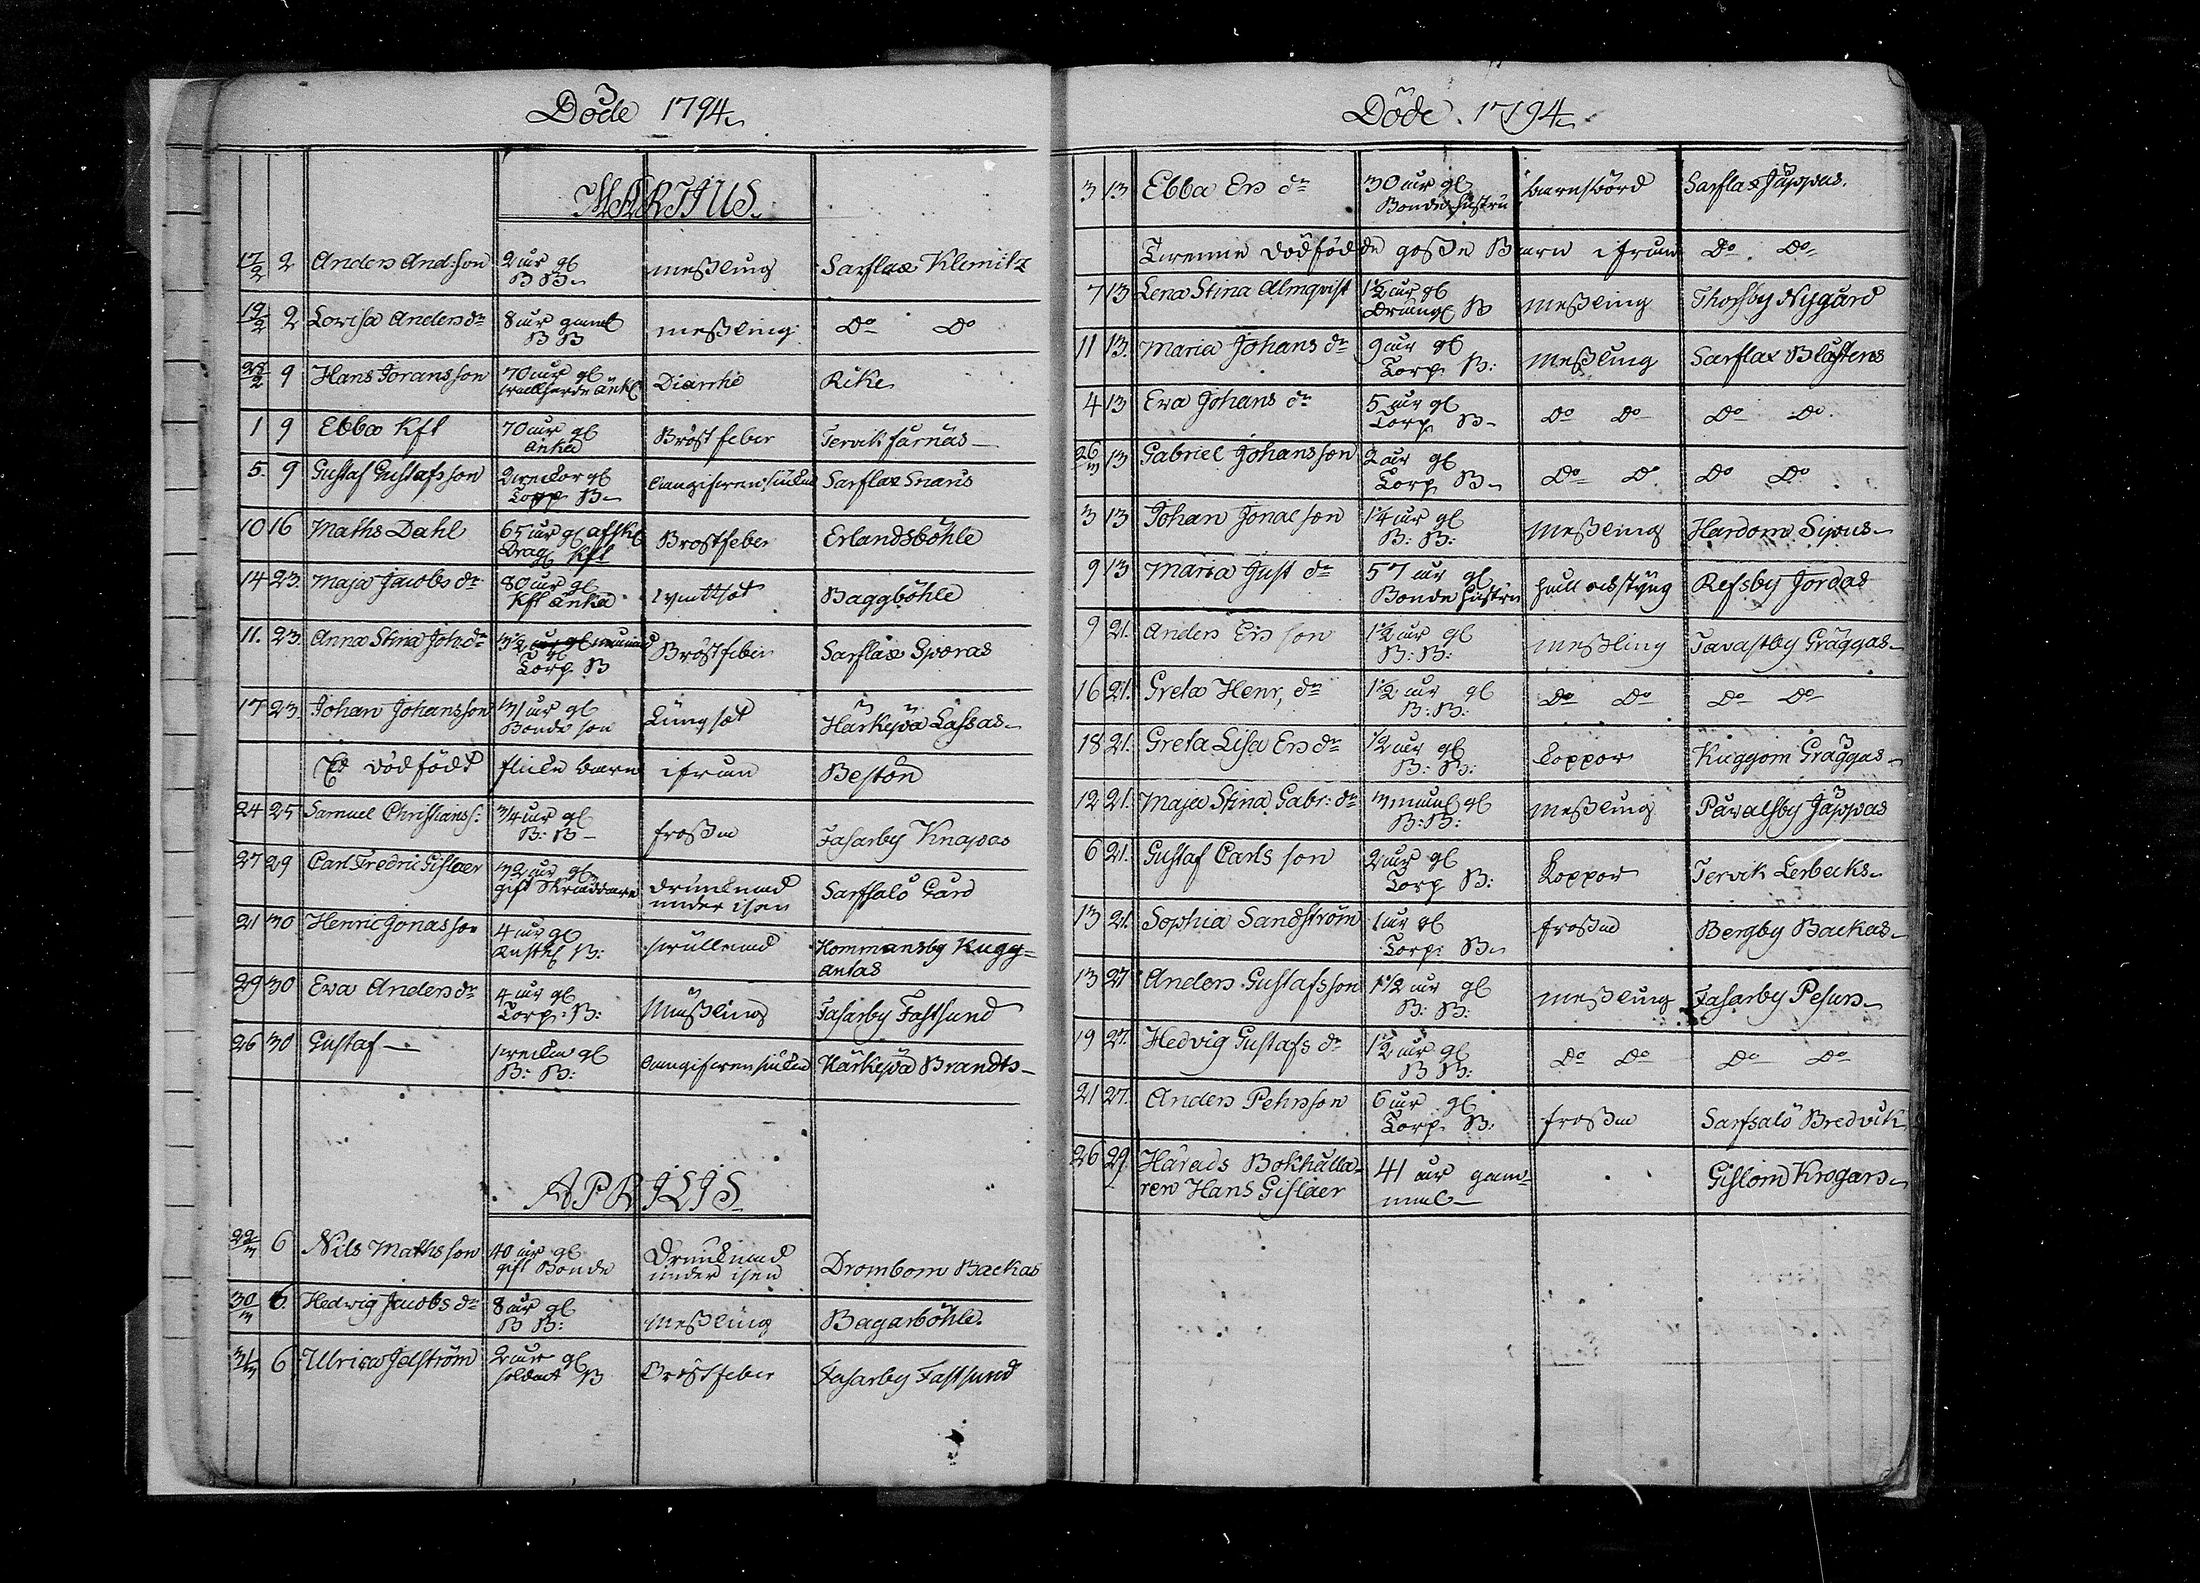 Döde 1794
MARTIUS.
17/2 2 Anders And:son 2 år gl B B. meßling Sarflax Klemitz
19/2 2 Lovisa Anders dr 8 år gamt B B meßling Do Do
28/2 9 Hans Joransson 70 år gl änkl Diarrhé Rike
1 9 Ebba Kfl 70 år gl änka Bröstfeber Tervik farnäs
5. 9 Gustaf Gustafsson 2 veckor gl Torp B. Sarflax Snårs
10 16 Maths Dahl 65 år gl afsk Drag Kfl Bröstfeber Erlandsböhle
14 23. Maja Jacobs dr 80 år gl Kfl änka Baggböhle
11. 23. Anna Stina Joh:dr 3 1/2 Torp B Bröstfeber Sarflax Sporas
17 23. Johan Johansson 31 år gl Bonde son Lungsot Härkepä Lassas
Ett dödfödt flicke barn ifrån Bestön
24 25 Samuel Christians: 3/4 år gl B: B froßen Fasarby Knapas
27 29 Carl Fredric Gislaer 32 år gl gift Skräddare drunknad under isen Sarfsalö Gård
21 30 Henric Jonasson 4 år gl B: Hommansby Kugg=
antas
29 30 Eva Anders dr 4 år gl Torp: B: Mäßling Fasarby Fastsund
26 30 Gustaf 1 vecka gl B: B: Härkepä Brandts
APRILIS
22/3 6 Nils Mathsson 40 år gl gift Bonde Drunknad under isen Drombom Backas
30/3 6. Hedvig Jacobs dr 8 år gl B B: Meßling Bagarböhle.
31/3 6 Ulrica Jelström 2 år gl soldat B Bröstfeber Fasarby Fastsund
Döde. 1794
3 13 Ebba Ers dr 30 år gl Bonde hustru barnsbörd Sarflax Jäppas.
Tvenne dödfödde goße Barn ifrån Do Do
7 13 Lena Stina Almqvist 1 1/2 år gl Dräng B meßling Thorsby Nygård
11 13. Maria Johans dr 9 år gl Torp. B: meßling Sarflax Blåssens
4 13 Eva Johans dr 5 år gl Torp B Do Do Do Do
26/3 13 Gabriel Johansson 2 år gl Torp B Do Do Do Do
3 13 Johan Jonaeson 1 1/4 år gl B: B: Meßling Hardom Sipus
9 13 Maria Just dr 57 år gl Bonde hustru håll och styng Refsby Jordas
9 21. Anders Ersson 1 1/2 år gl B: B: meßling Tavastby Gräggas
16 21. Greta Henr, dr 1 1/2 år gl B: B: Do Do Do Do
18 21. Greta Lisa Ers dr 1/2 år gl B: B: Koppor Kuggom Gräggas
12 21. Maja Stina Gabr: dr 3 mån gl B: B: Meßling Påvalsby Jäppas
6 21. Gustaf Carlsson 2 år gl Torp B: Koppor Tervik Lerbecks
13 21. Sophia Sandström 1 år gl Torp: B. froßen Bergby Backas
13 27 Anders Gustafsson 1 1/2 år gl B: B: meßling Fasarby Pesurs
19 27. Hedvig Gustafs dr 1 1/2 år gl B B: Do Do Do Do
21 27. Anders Pehrsson 6 år gl Torp. B: frossen Sarfsalö Bredvik
26 29. Härads Bokhålla-
ren Hans Gislaer 41 år gam-
mal Gislom Krogars